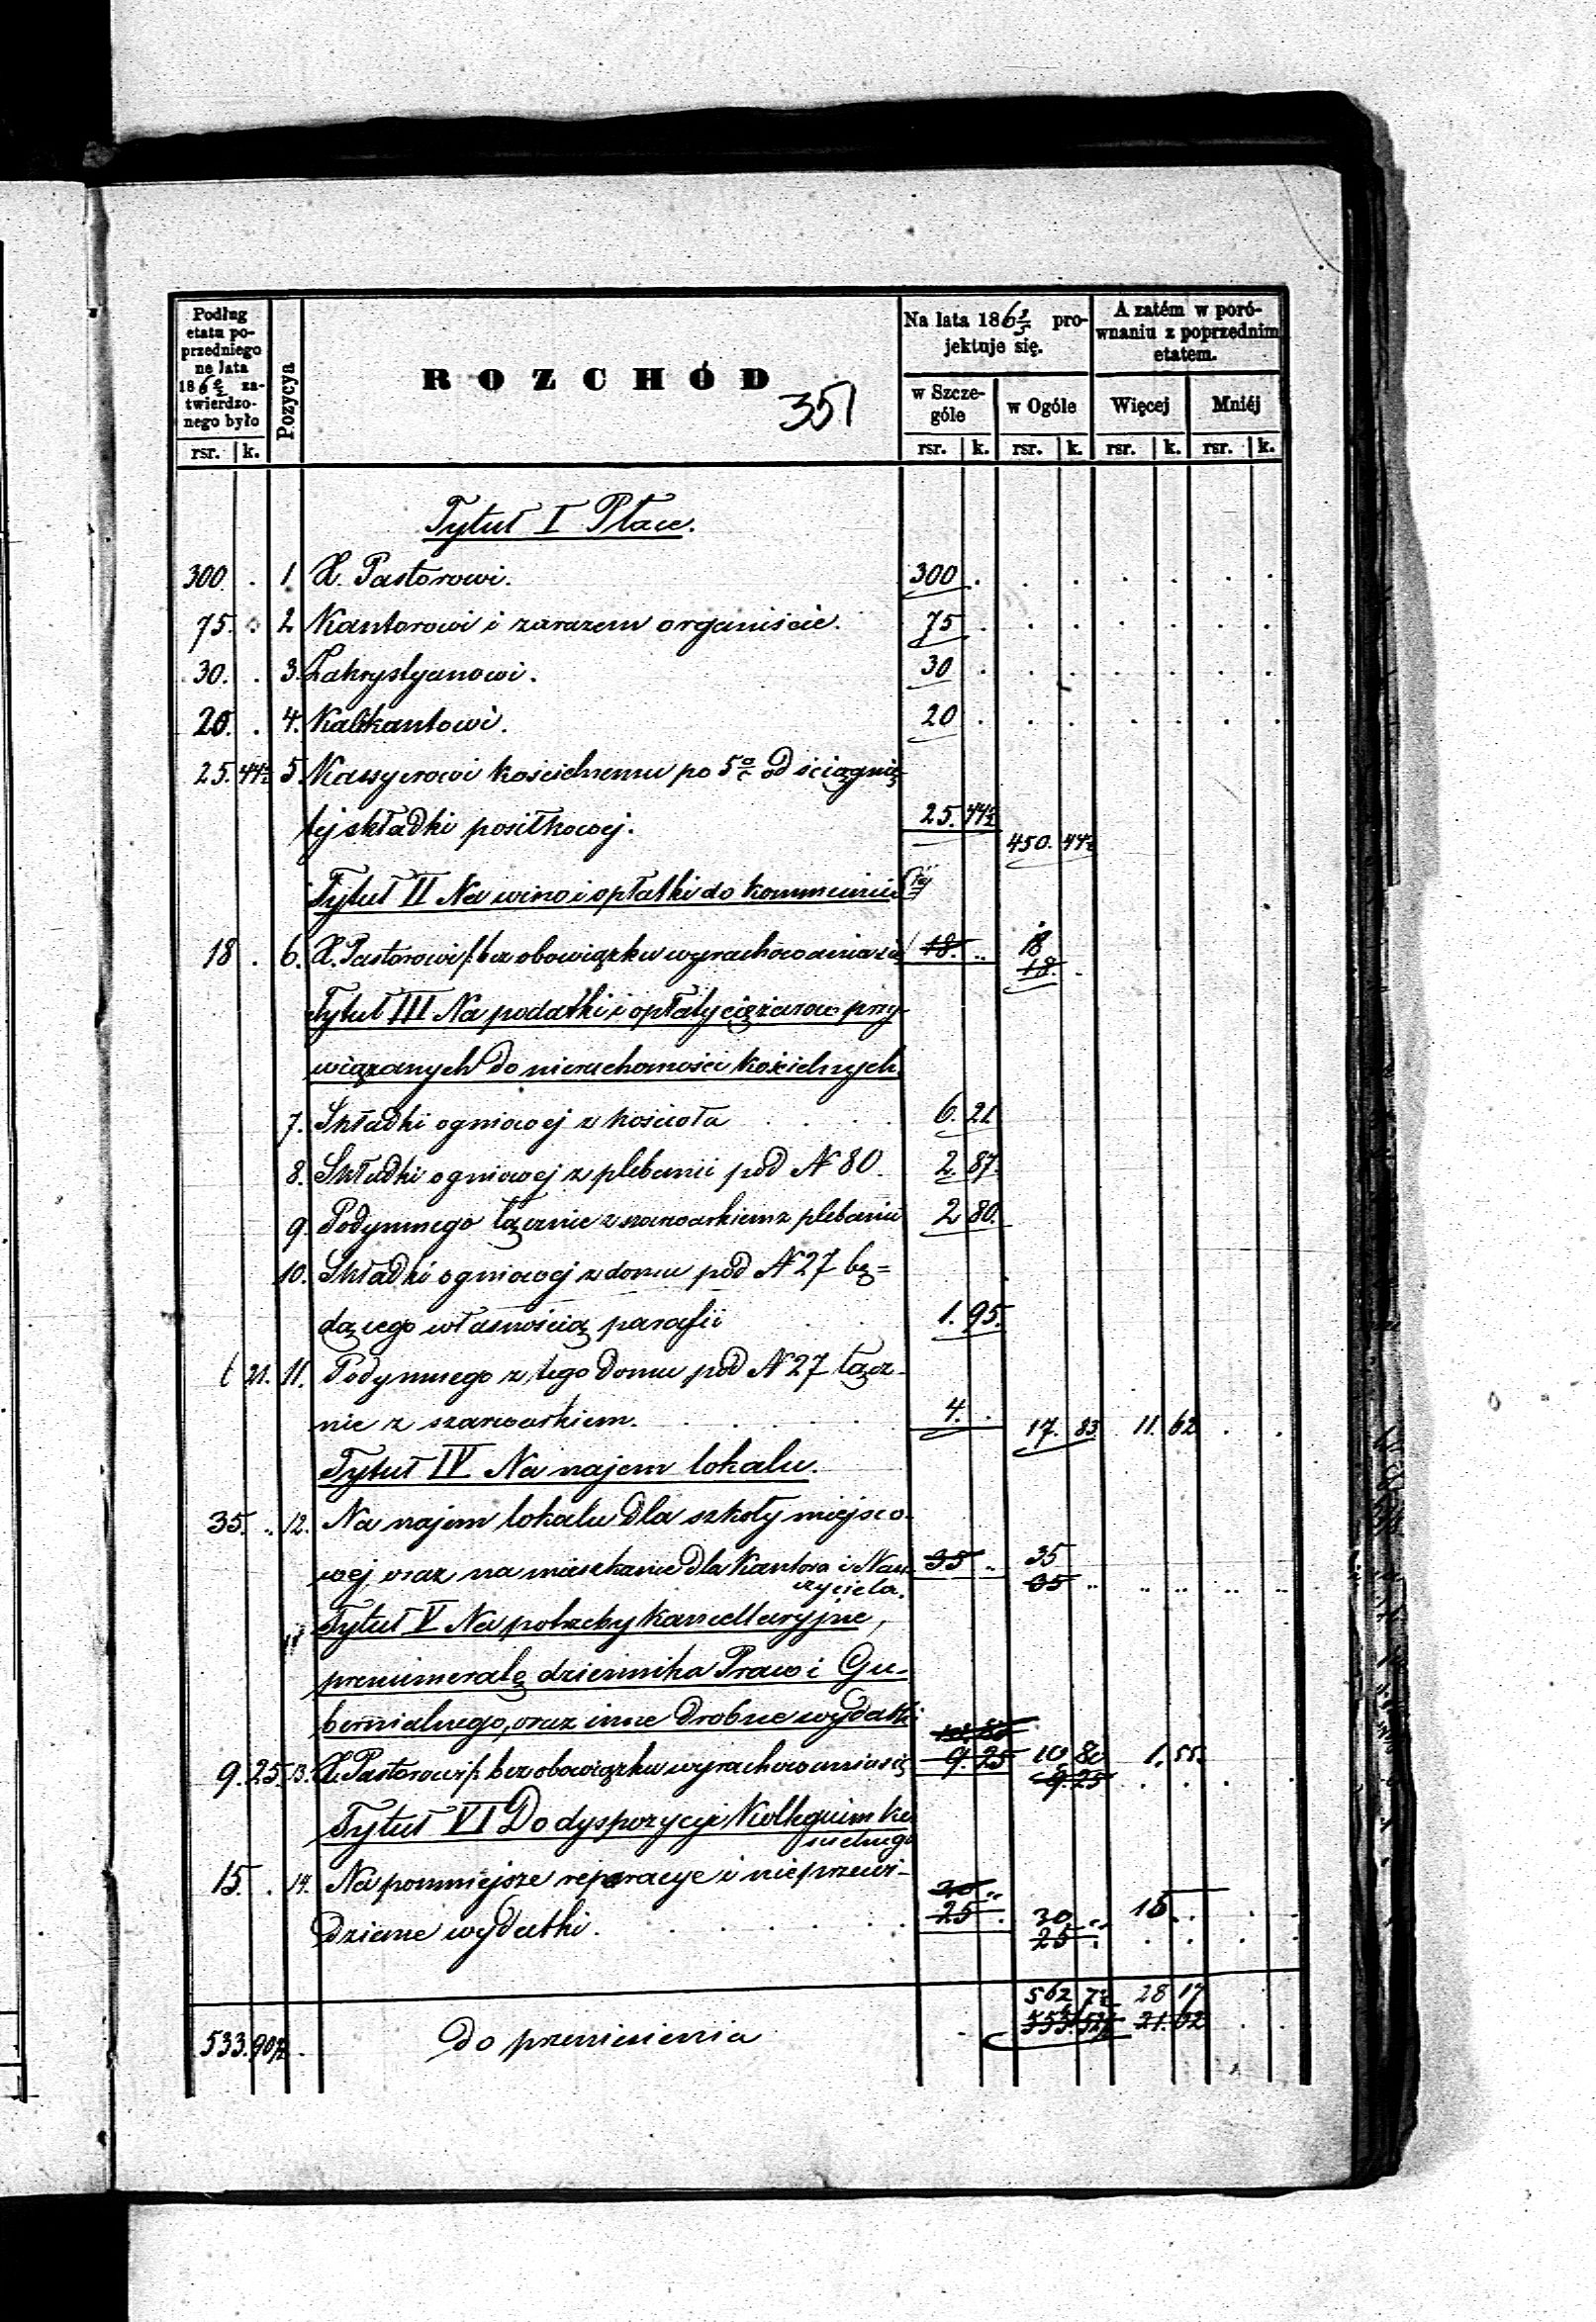 Podług etatu poprzedniego na lata 186 0/2 zatwierdzonego było
Pozycya
ROZCHÓD
351
Na lata 186 3/5 projektuje się.
A zatém w porównaniu z poprzednim etatem.
w Szczególe
w Ogóle
Więcej
Mniéj
rsr. k. rsr. k. rsr. k. rsr. k. rsr. k.
Tytuł I Płace.
300 . 1. X. Pastorowi. 300 .
75. . 2 Kantorowi i zarazem organiście. 75 .
30. . 3. Zakrystyanowi. 30 .
20. . 4. Kalikantowi. 20 .
25. 44½ 5. Kassyerowi kościelnemu po 5% od ściągnię-
tej składki posiłkowej. 25. 44½ 450. 44½
Tytuł II Na wino i opłatki do kommunii Stej
18 . 6. X. Pastorowi /: bez obowiązku wyrachowania się 18. .. 18 18. .
Tytuł III Na podatki i opłaty ciężarów przy-
wiązanych do nieruchomości kościelnych
7. Składki ogniowej z kościoła 6. 21
8. Składki ogniowej z plebanii pod N 80. 2. 87.
9. Podymnego łącznie z szarwarkiem z plebanii 2 80.
10. Składki ogniowej z domu pod N 27 bę=
dącego własnością parafii 1. 95.
6 21. 11. Podymnego z tego domu pod N 27 łącz-
nie z szarwarkiem. 4. . 17. 83 11. 62
Tytuł IV Na najem lokalu.
35. .. 12. Na najem lokalu dla szkoły miejsco-
wej, oraz na mieszkanie dla Kantora i Nau- 35 .. 35
czyciela. 35 ..
Tytuł V Na potrzeby kancellaryjne,
prenumeratę dziennika Praw i Gu-
bernialnego, oraz inne drobne wydatki 10. 80
9. 25. 13. X. Pastorowi /: bez obowiązku wyrachowania się 9. 25 10 80 1. 55.
9. 25
Tytuł VI Do dyspozycji Kollegium ko-
ścielnego
15. . 14. Na pomniejsze reperacye i nieprzewi- 30 ..
dziane wydatki. 25 . 30 .. 15 ..
25 .
562 7½ 28 17
533. 90½ Do przeniesienia 553. 52½ 21. 62